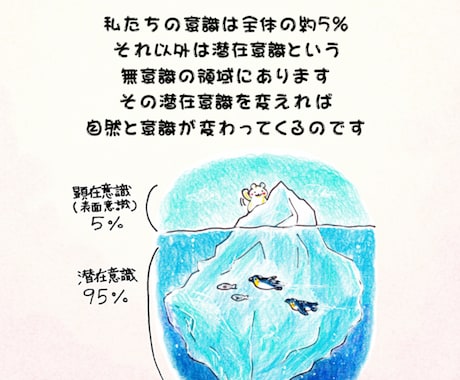 私たちの意識は全体の約5%
それ以外は潜在意識という
無意識の領域にあります
その潜在意識を変えれば
自然と意識が変わってくるのです
顕在意識
(表面意識)
5%
潜在意識
95%